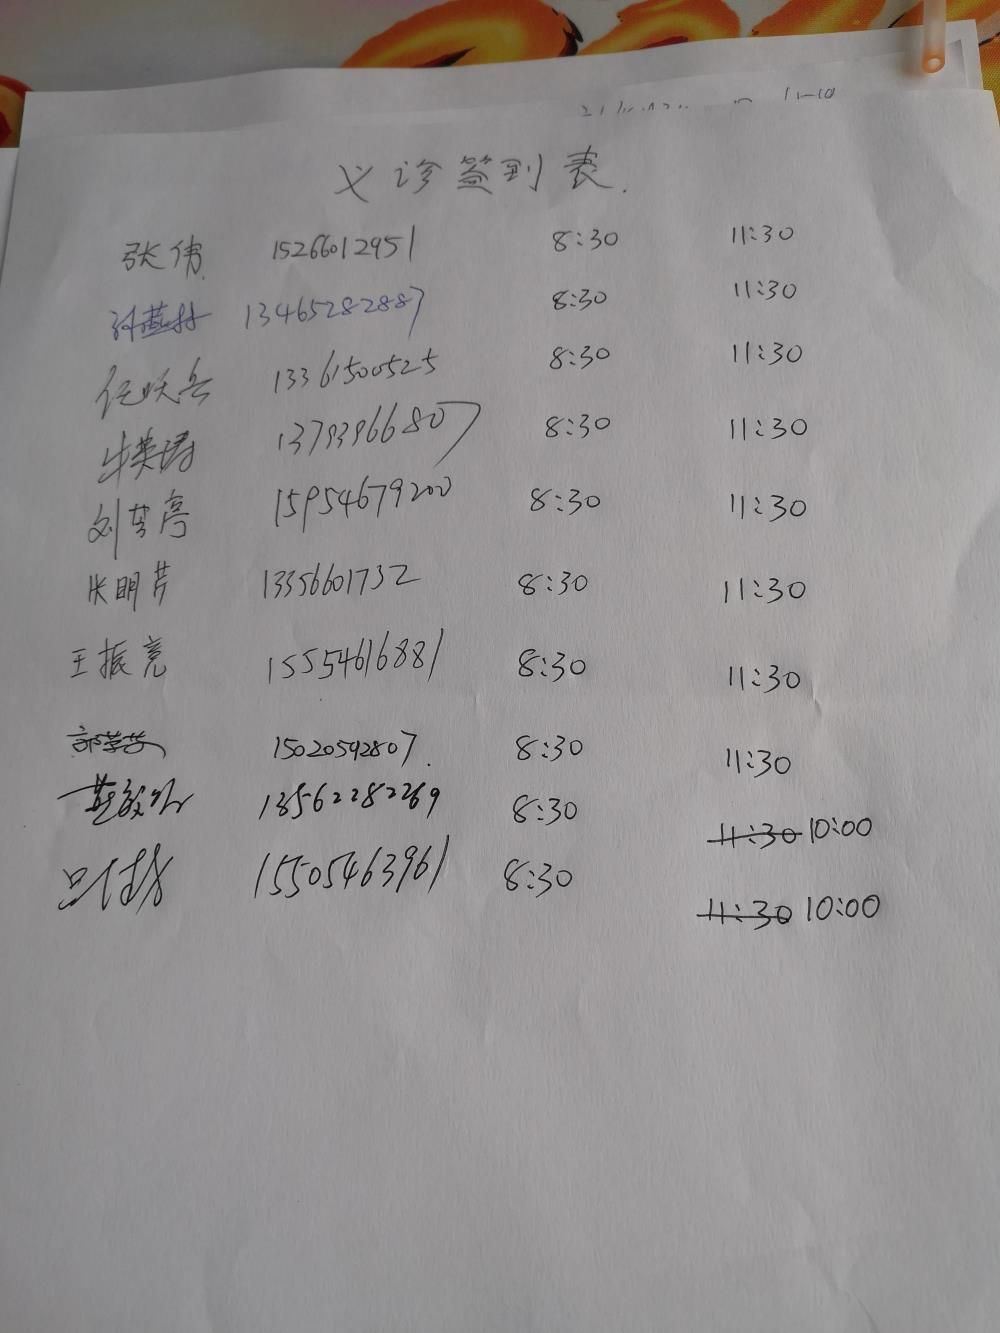 义诊签到表
张伟 15266012951 8:30 11:30
13465282887 8:30 11:30
13361500525 8:30 11:30
牛英涛 13793966807 8:30 11:30
刘芳亭 15954679200 8:30 11:30
张明芹 13356601732 8:30 11:30
王振亮 15554616881 8:30 11:30
15020542807 8:30 11:30
13562282269 8:30 11:30 10:00
15505463961 8:30 11:30 10:00